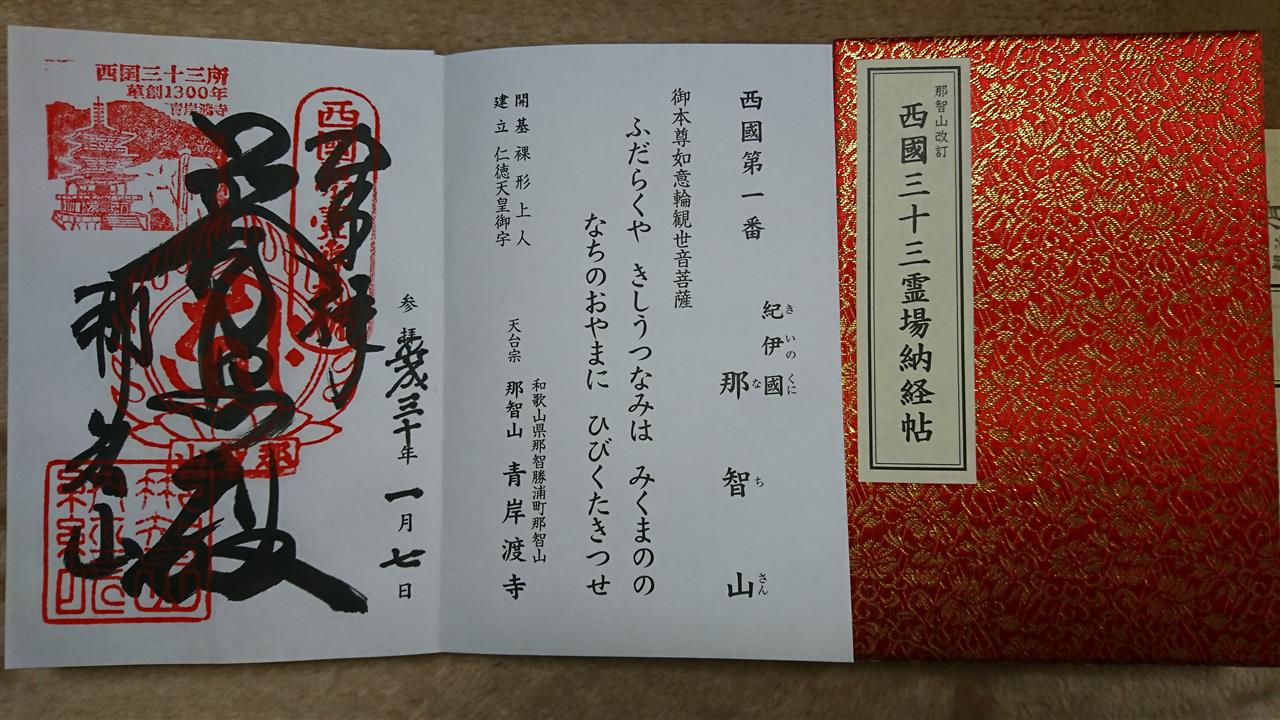 那智山改訂
西國三十三霊場納経帖
西國第一番
紀伊國
きいのくに
那智山
なちさん
御本尊如意輪観世音菩薩
ふだらくや きしうつなみは みくまのの
なちのおやまに ひびくたきつせ
開基 裸形上人
建立 仁徳天皇御宇
和歌山県那智勝浦町那智山
天台宗 那智山 青岸渡寺
西国三十三所
草創1300年
青岸渡寺
奉拝
参拝 平成三十年 一月七日
那智山